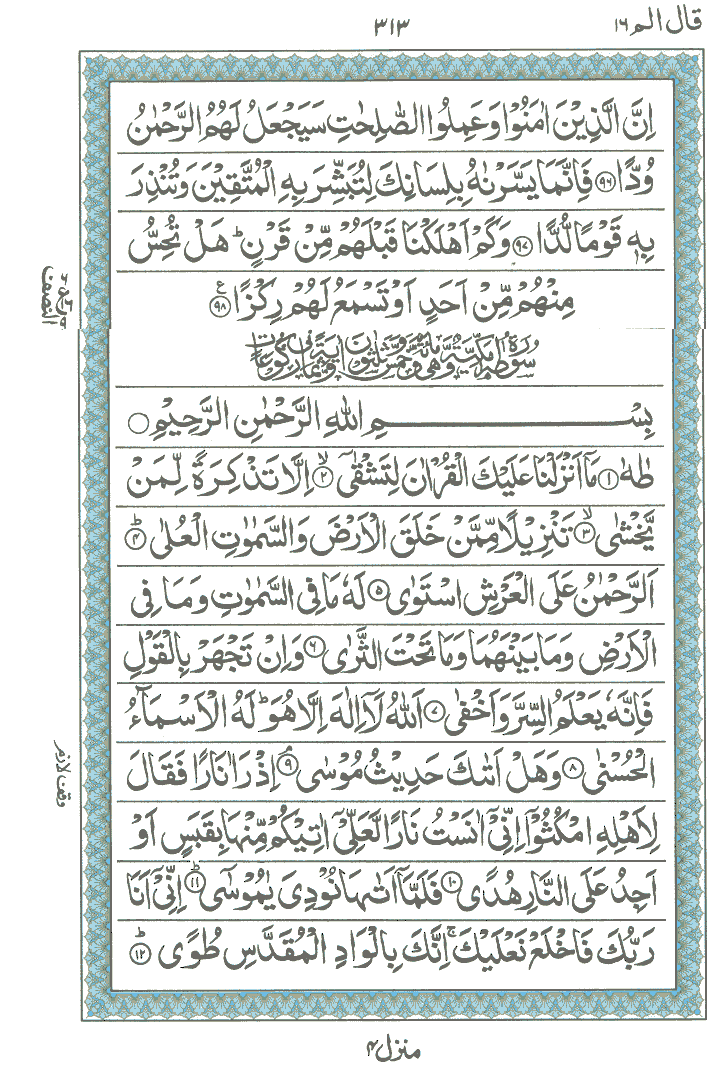 قال الم ١٦
٣١٣
اِنَّ الَّذِيْنَ اٰمَنُوْا وَعَمِلُوا الصّٰلِحٰتِ سَيَجْعَلُ لَهُمُ الرَّحْمٰنُ
وُدًّا ﴿٩٦﴾ فَاِنَّمَا يَسَّرْنٰهُ بِلِسَانِكَ لِتُبَشِّرَ بِهِ الْمُتَّقِيْنَ وَتُنْذِرَ
بِهٖ قَوْمًا لُّدًّا ﴿٩٧﴾ وَكَمْ اَهْلَكْنَا قَبْلَهُمْ مِّنْ قَرْنٍ ؕ هَلْ تُحِسُّ
مِنْهُمْ مِّنْ اَحَدٍ اَوْ تَسْمَعُ لَهُمْ رِكْزًا ﴿٩٨﴾ ع
النصف
سُوْرَةُ طٰهٰ مَكِّيَّةٌ وَّهِيَ مِائَةٌ وَّخَمْسٌ وَّثَلٰثُوْنَ اٰيَةً وَّثَمَانِ رُكُوْعَاتٍ
بِسْمِ اللّٰهِ الرَّحْمٰنِ الرَّحِيْمِ
طٰهٰ ﴿١﴾ مَاۤ اَنْزَلْنَا عَلَيْكَ الْقُرْاٰنَ لِتَشْقٰۤى ﴿٢﴾ ۙ اِلَّا تَذْكِرَةً لِّمَنْ
يَّخْشٰى ﴿٣﴾ ۙ تَنْزِيْلًا مِّمَّنْ خَلَقَ الْاَرْضَ وَالسَّمٰوٰتِ الْعُلٰى ﴿٤﴾ ؕ
اَلرَّحْمٰنُ عَلَى الْعَرْشِ اسْتَوٰى ﴿٥﴾ لَهٗ مَا فِى السَّمٰوٰتِ وَمَا فِى
الْاَرْضِ وَمَا بَيْنَهُمَا وَمَا تَحْتَ الثَّرٰى ﴿٦﴾ وَاِنْ تَجْهَرْ بِالْقَوْلِ
فَاِنَّهٗ يَعْلَمُ السِّرَّ وَاَخْفٰى ﴿٧﴾ اَللّٰهُ لَاۤ اِلٰهَ اِلَّا هُوَ ؕ لَهُ الْاَسْمَآءُ
الْحُسْنٰى ﴿٨﴾ وَهَلْ اَتٰىكَ حَدِيْثُ مُوْسٰى ﴿٩﴾ ۘ اِذْ رَاٰ نَارًا فَقَالَ
وقف لازم
لِاَهْلِهِ امْكُثُوْۤا اِنِّىْۤ اٰنَسْتُ نَارًا لَّعَلِّىْۤ اٰتِيْكُمْ مِّنْهَا بِقَبَسٍ اَوْ
اَجِدُ عَلَى النَّارِ هُدًى ﴿١٠﴾ فَلَمَّاۤ اَتٰىهَا نُوْدِىَ يٰمُوْسٰى ﴿١١﴾ ؕ اِنِّىْۤ اَنَا
رَبُّكَ فَاخْلَعْ نَعْلَيْكَ ۚ اِنَّكَ بِالْوَادِ الْمُقَدَّسِ طُوًى ﴿١٢﴾ ؕ
منزل ٤